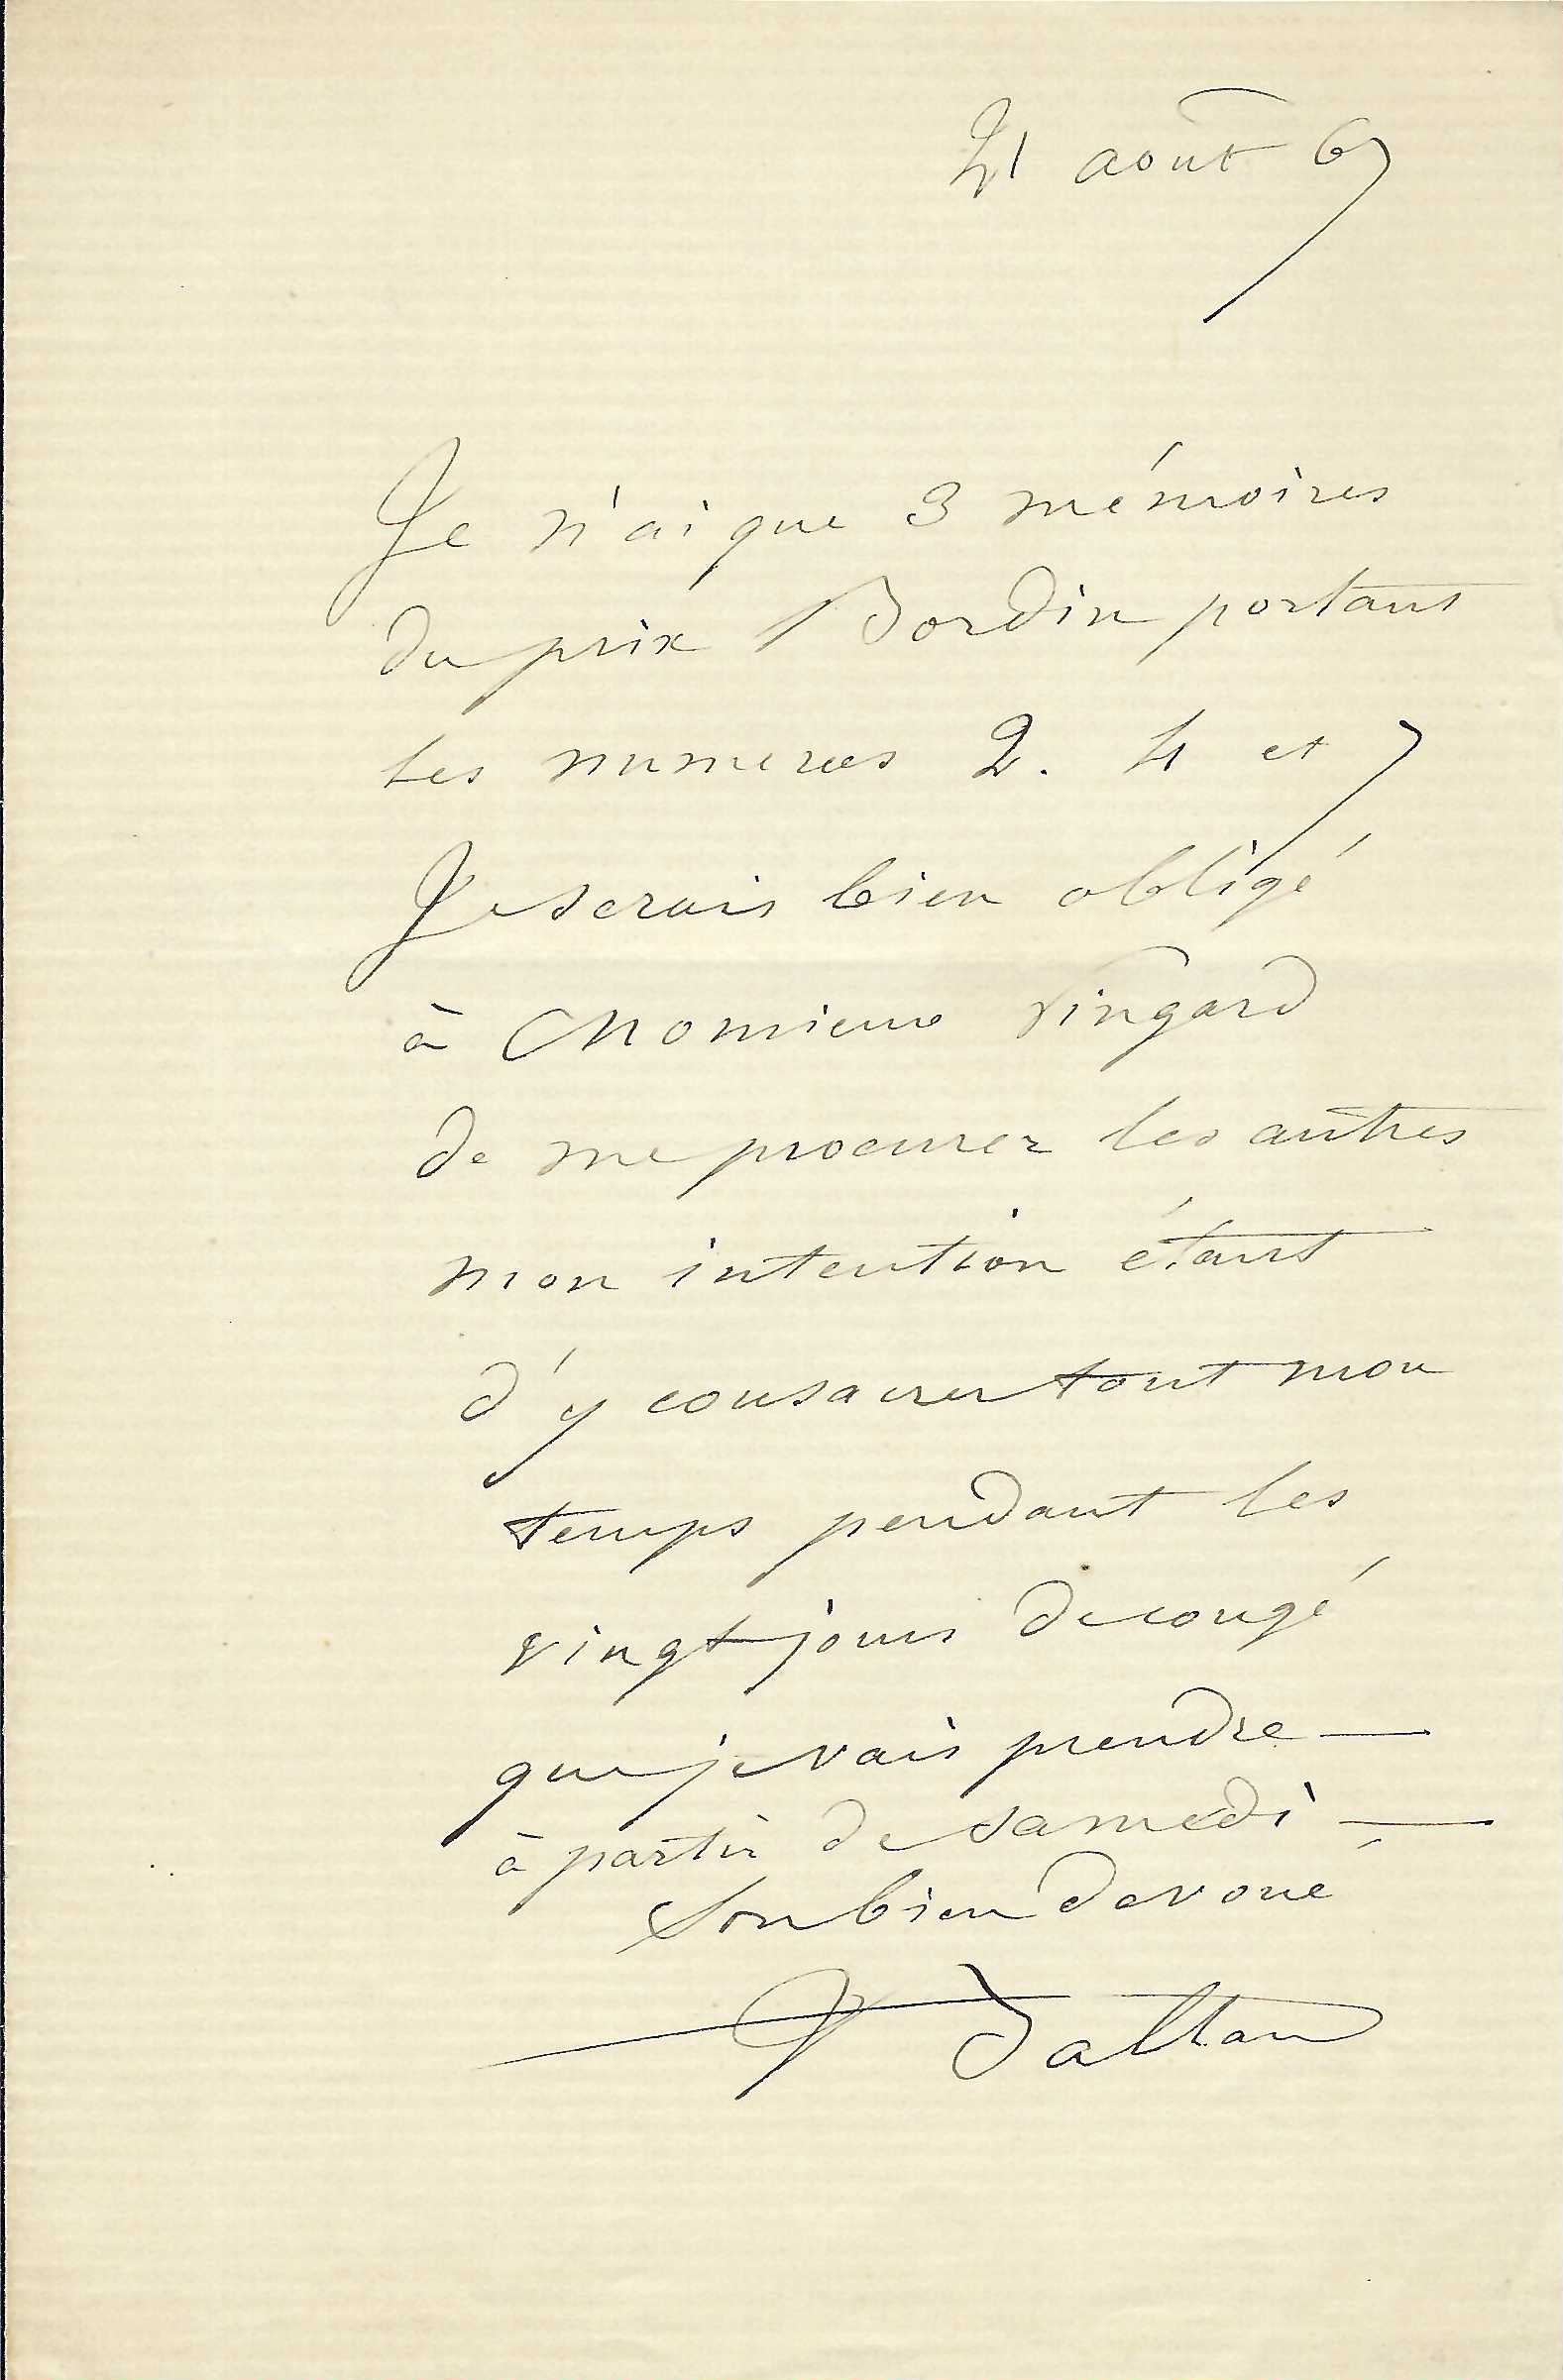 21 août 67
Je n'ai que 3 mémoires
du prix Bordin portant
les numeros 2. 4 et 7
Je serais bien obligé
à Monsieur Pingard
de me procurer les autres
mon intention étant
d'y consacrer tout mon
temps pendant les
vingt jours de congé
que je vais prendre —
à partir de samedi —
Son bien devoué
Daltan